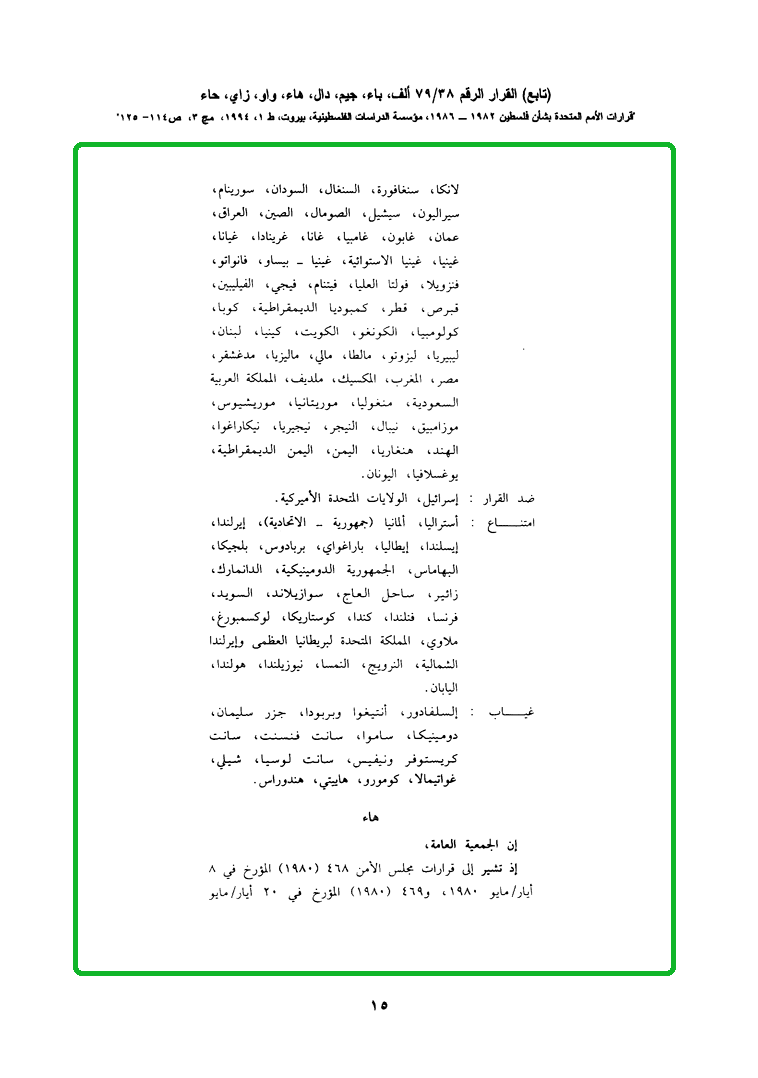 (تابع) القرار الرقم ٧٩/٣٨ ألف، باء، جيم، دال، هاء، واو، زاي، حاء
"قرارات الأمم المتحدة بشأن فلسطين ١٩٨٢ ــ ١٩٨٦، مؤسسة الدراسات الفلسطينية، بيروت، ط ١، ١٩٩٤، مج ٣، ص١١٤- ١٢٥"
لانكا، سنغافورة، السنغال، السودان، سورينام،
سيراليون، سيشيل، الصومال، الصين، العراق،
عمان، غابون، غامبيا، غانا، غرينادا، غيانا،
غينيا، غينيا الاستوائية، غينيا ـ بيساو، فانواتو،
فنزويلا، فولتا العليا، فيتنام، فيجي، الفيليبين،
قبرص، قطر، كمبوديا الديمقراطية، كوبا،
كولومبيا، الكونغو، الكويت، كينيا، لبنان،
ليبيريا، ليزوتو، مالطا، مالي، ماليزيا، مدغشقر،
مصر، المغرب، المكسيك، ملديف، المملكة العربية
السعودية، منغوليا، موريتانيا، موريشيوس،
موزامبيق، نيبال، النيجر، نيجيريا، نيكاراغوا،
الهند، هنغاريا، اليمن، اليمن الديمقراطية،
يوغسلافيا، اليونان.
ضد القرار : إسرائيل، الولايات المتحدة الأميركية.
امتنـــــاع : أستراليا، ألمانيا (جمهورية ـ الاتحادية)، إيرلندا،
إيسلندا، إيطاليا، باراغواي، بربادوس، بلجيكا،
البهاماس، الجمهورية الدومينيكية، الدانمارك،
زائير، ساحل العاج، سوازيلاند، السويد،
فرنسا، فنلندا، كندا، كوستاريكا، لوكسمبورغ،
ملاوي، المملكة المتحدة لبريطانيا العظمى وإيرلندا
الشمالية، النرويج، النمسا، نيوزيلندا، هولندا،
اليابان.
غيـــــاب : إلسلفادور، أنتيغوا وبربودا، جزر سليمان،
دومينيكا، ساموا، سانت فنسنت، سانت
كريستوفر ونيفيس، سانت لوسيا، شيلي،
غواتيمالا، كومورو، هاييتي، هندوراس.
هاء
إن الجمعية العامة،
إذ تشير إلى قرارات مجلس الأمن ٤٦٨ (١٩٨٠) المؤرخ في ٨
أيار/مايو ١٩٨٠، و٤٦٩ (١٩٨٠) المؤرخ في ٢٠ أيار/مايو
١٥